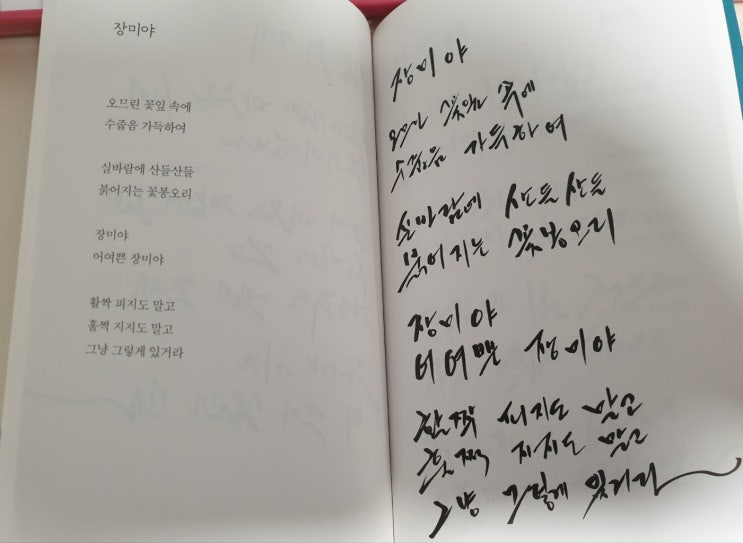 장미야
오므린 꽃잎 속에
수줍음 가득하여
실바람에 산들산들
붉어지는 꽃봉오리
장미야
어여쁜 장미야
활짝 피지도 말고
훌쩍 지지도 말고
그냥 그렇게 있거라
장미야
오므린 꽃잎 속에
수줍음 가득하여
실바람에 산들산들
붉어지는 꽃봉오리
장미야
어여쁜 장미야
활짝 피지도 말고
훌쩍 지지도 말고
그냥 그렇게 있거라